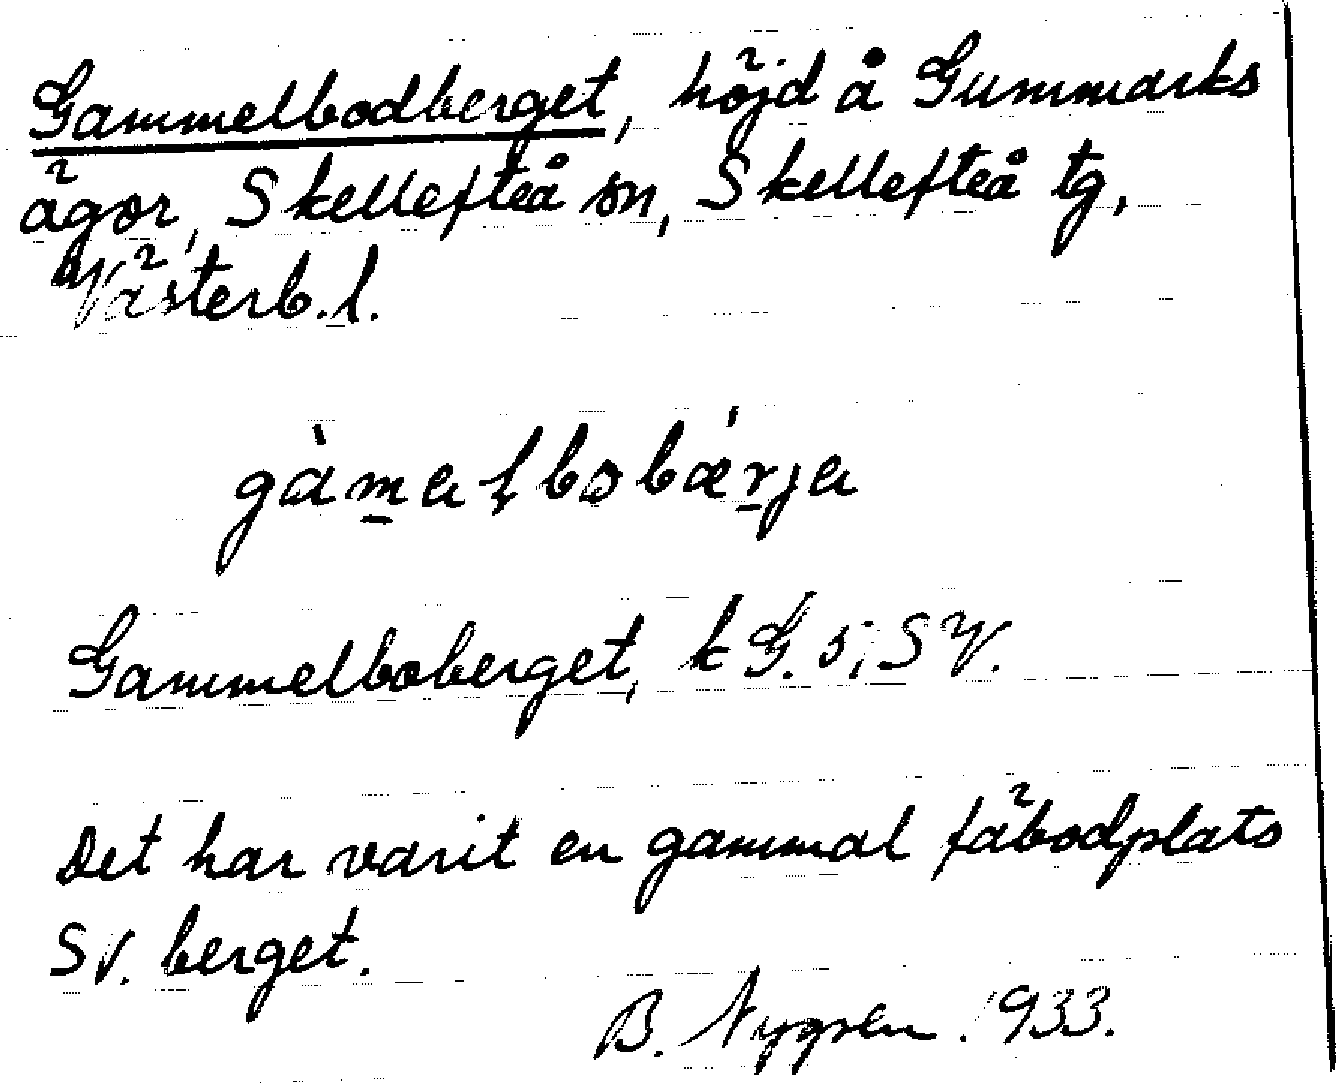 Gammelbodberget, höjd å Gummarks
ägor, Skellefteå sn, Skellefteå tg,
Västerb. l.
gàmalbobǽrja
Gammelboberget, k G. 5; SV.
Det har varit en gammal fäbodplats
SV. berget.
B. Nygren. 1933.